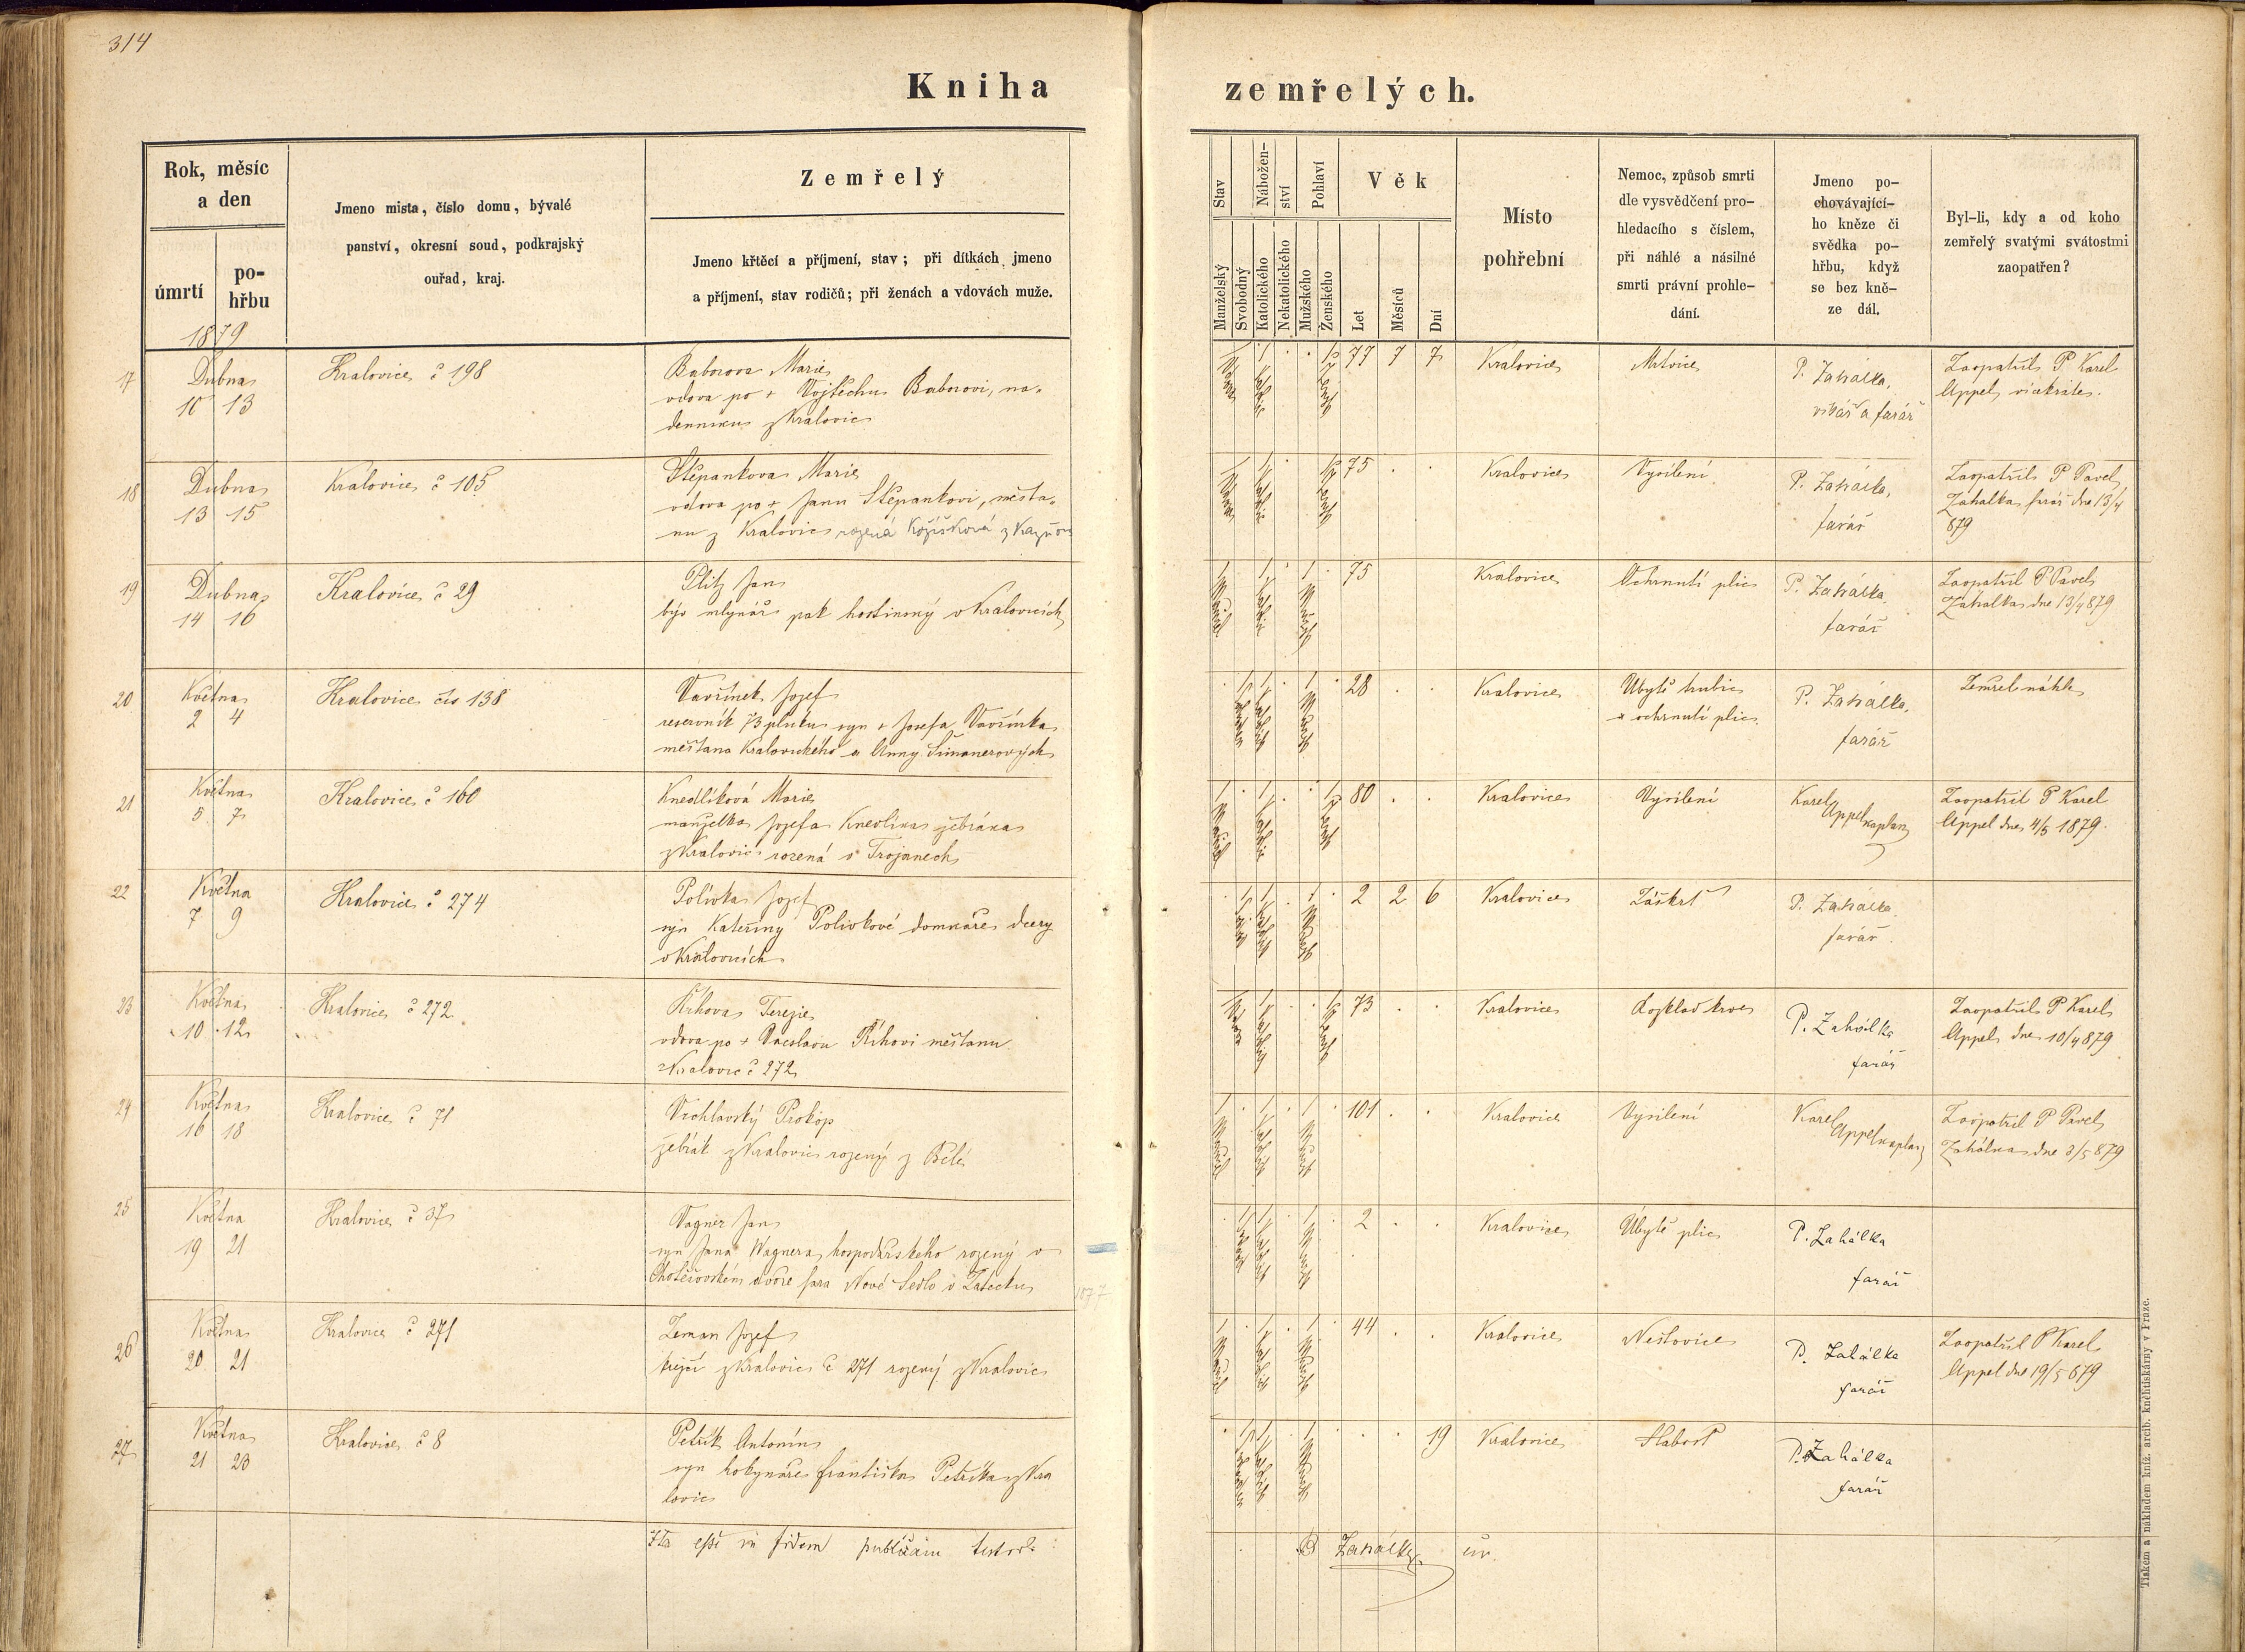 314
Kniha zemřelých.
Rok, měsíc
a den
úmrtí
po-
hřbu
1879
Jmeno mista, číslo domu, bývalé
panství, okresní soud, podkrajský
ouřad, kraj.
Zemřelý
Jmeno křtěcí a příjmení, stav; při dítkách jmeno
a příjmení, stav rodičů; při ženách a vdovách muže.
Stav
Manželský
Svobodný
Nábožen-
ství
Katolického
Nekatolického
Pohlaví
Mužského
Ženského
Věk
Let
Měsíců
Dní
Místo
pohřební
Nemoc, způsob smrti
dle vysvědčení pro-
hledacího s číslem,
při náhlé a násilné
smrti právní prohle-
dání.
Jmeno po-
chovávající-
ho kněze či
svědka po-
hřbu, když
se bez kně-
ze dál.
Byl-li, kdy a od koho
zemřelý svatými svátostmi
zaopatřen?
17 Dubna
10 13
Kralovice č 198
Baborova Marie
vdova po + Vojtěchu Baborovi, na-
denniku z Kralovic
77 7 7
Kralovice
Mrtvice
P. Zahálka,
vikář a farář
Zaopatřil P Karel
Appel vícekráte.
18 Dubna
13 15
Kralovice č 105
Štěpankova Marie
vdova po + Janu Štěpankovi, mešťa-
nu z Kralovic rozená Kožíšková z Kaznova
75
Kralovice
Vysílení
P. Zahálka,
farář
Zaopatřil P Pavel
Zahalka farář dne 13/4
879
19 Dubna
14 16
Kralovice č 29
Plitz Jan
býv mlynář pak hostinský v Kralovicích
75
Kralovice
Ochrnutí plic
P. Zahálka,
farář
Zaopatřil P Pavel
Zahalka dne 13/4 879
20 Května
2 4
Kralovice čis 138
Vavřínek Jozef
reservník 73 pluku syn + Josefa Vavřínka
mešťana Kralovického a Anny Šimanerových
28
Kralovice
Úbytě
a ochrnutí plic.
P. Zahálka,
farář
Zemřel náhle
21 Května
5 7
Kralovice č 160
Knedlíková Marie
manželka Jozefa Knedlíka žebráka
z Kralovic rozená v Trojanech
80
Kralovice
Vysílení
Karel
Appel kaplan
Zaopatřil P Karel
Appel dne 4/5 1879.
22 Května
7 9
Kralovice č 274
Polívka Jozef
syn Kateřiny Polívkové domkáře dcery
v Kralovicích
2 2 6
Kralovice
Záškrt
P. Zahálka,
farář.
23 Května
10 12
Kralovice č 272
Říhova Terezie
vdova po + Václavu Říhovi mešťanu
z Kralovic č 272
73
Kralovice
Rozklad krve
P. Zahálka
farář
Zaopatřil P Karel
Appel dne 10/4 879
24 Května
16 18
Kralovice č 71
Vrchlavský Prokop
žebrák z Kralovic rozený z Bělé
101
Kralovice
Vysílení
Karel
Appel kaplan
Zaopatřil P Pavel
Zahálka dne 3/5 879
25 Května
19 21
Kralovice č 37
Vagner Jan
syn Jana Wagnera hospodářského rozený v
Chotěšovském dvoře fara Nové Sedlo v Žatecku
1877
2
Kralovice
Úbytě plic
P. Zahálka
farář
26 Května
20 21
Kralovice č 271
Zeman Jozef
krejčí z Kralovic č 271 rozený z Kralovic
44
Kralovice
Neštovice
P. Zahálka
farář
Zaopatřil P Karel
Appel dne 19/5 879
27 Května
21 23
Kralovice č 8
Petřík Antonín
syn hokynáře Františka Petříka z Kra
lovic
19
Kralovice
Slabost
P. Zahálka
farář
Ita esse in fidem publicam testor
P Zahálka
Tiskem a nákladem kníž. arcib. kněhtiskárny v Praze.